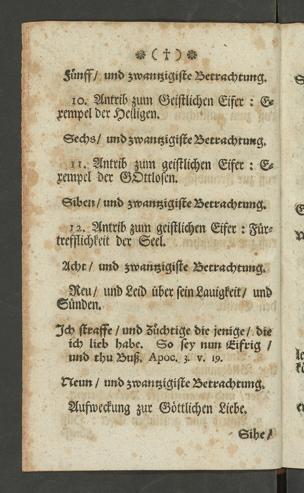 ❋ ( † ) ❋
Fünff/ und zwantzigiste Betrachtung.
10. Antrib zum Geistlichen Eifer : E-
xempel der Heiligen.
Sechs/ und zwantzigiste Betrachtung.
11. Antrib zum geistlichen Eifer : E-
xempel der GOttlosen.
Siben/ und zwantzigiste Betrachtung.
12. Antrib zum geistlichen Eifer : Für-
trefflichkeit der Seel.
Acht/ und zwantzigiste Betrachtung.
Reu/ und Leid über sein Lauigkeit/ und
Sünden.
Ich straffe/ und züchtige die jenige/ die
ich lieb habe. So sey nun Eifrig /
und thu Buß. Apoc. 3. v. 19.
Neun/ und zwantzigiste Betrachtung.
Aufweckung zur Göttlichen Liebe.
Sihe/